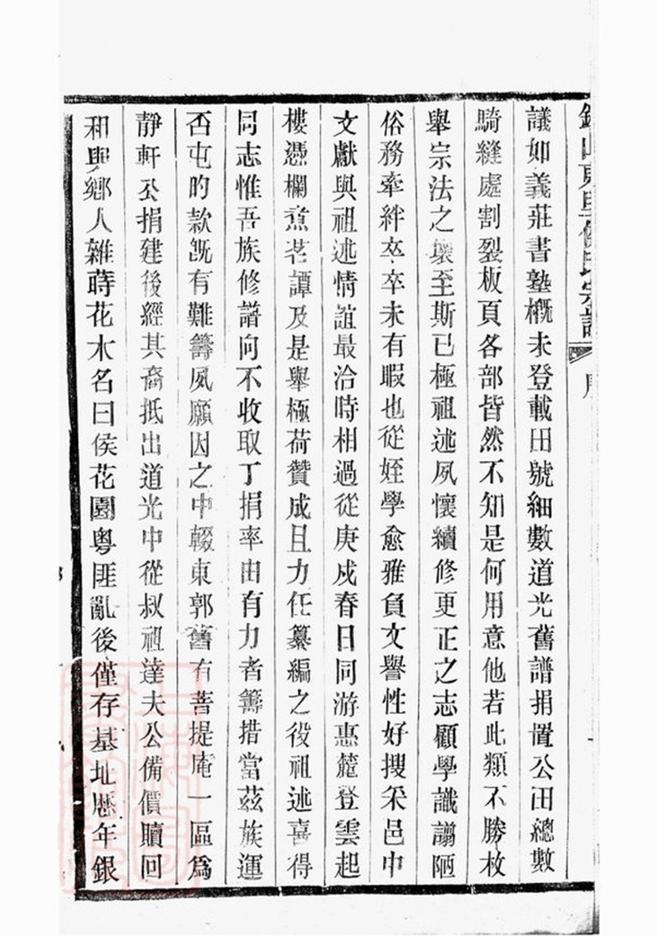 錫山東里侯氏宗譜 序
議如義莊書塾概未登載田號細數道光舊譜捐置公田總數
騎縫處割裂板頁各部皆然不知是何用意他若此類不勝枚
舉宗法之壞至斯已極祖述夙懷續修更正之志顧學識謭陋
俗務牽絆卒卒未有暇也從姪學愈雅負文譽性好搜采邑中
文獻與祖述情誼最洽時相過從庚戍春日同游惠麓登雲起
樓憑欄煑茗譚及是舉極荷贊成且力任纂編之役祖述喜得
同志惟吾族修譜向不收取丁捐率由有力者籌措當茲族運
否屯昀款旣有難籌夙願因之中輟東郭舊有菩提庵一區爲
靜軒公捐建後經其裔抵出道光中從叔祖達夫公備價贖回
和興鄉人雜蒔花木名曰侯花園粵匪亂後僅存基址歷年銀